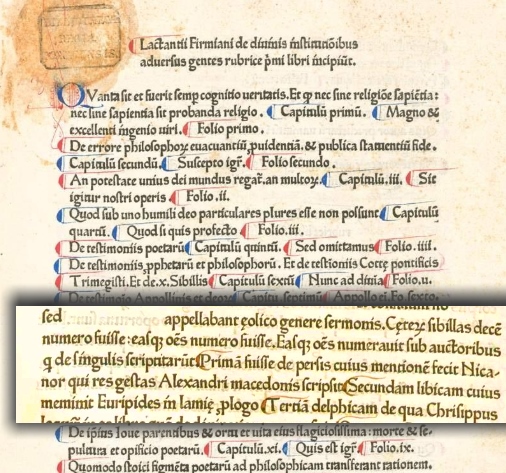 Lactantii Firmiani de diuinis institutiõibus
aduersus gentes rubrice p̃mi libri incipiũt.
QVanta sit et fuerit semp cognitio ueritatis. Et ꝙ nec sine religiõe sapiẽtia:
nec sine sapientia sit probanda religio. Capitulũ primũ. Magno &
excellenti ingenio uiri. Folio primo.
De errore philosophoꝝ euacuantiũ ꝓuidentiã. & publica statuentiũ fide.
Capitulũ secundũ. Suscepto igr̃. Folio secundo.
An potestate unius dei mundus regat̃. an multoꝝ. Capitulũ.iii. Sit
igitur nostri operis Folio.ii.
Quod sub uno humili deo particulares plures esse non possunt Capitulũ
quartũ. Quod si quis profecto Folio.iii.
De testimoniis poetarũ Capitulũ quintũ. Sed omittamus Folio.iiii.
De testimoniis ꝓphetarũ et philosophorũ. Et de testioniis Cotte pontificis
Trimegisti. Et de.x. Sibillis Capitulũ sextũ Nunc ad diuina Folio.u.
De testimoio Appollinis et deoꝝ Capitu. septimũ Appollo ei. Fo. sexto.
sed appellabant ęolico genere sermonis. Cęterę sibillas decẽ
numero fuisse: easq; oẽs numero fuisse. Easq; oẽs numerauit sub auctoribus
q de singulis scriptitarũt Primã fuisse de persis cuius mentionẽ fecit Nica-
nor qui res gestas Alexandri macedonis scripsit Secundam libicam cuius
meminit Euripides in lamię ꝓlogo Tertiã delphicam de qua Chrisippus
De ip̃ius Ioue parentibus & ortu et uita eius flagiciosissima: morte & se-
pultura et opificio poetarũ. Capitulũ.xi. Quis est igr̃ Folio.ix.
Quomodo stoici figmẽta poetarũ ad philosophicam transferant rationem.